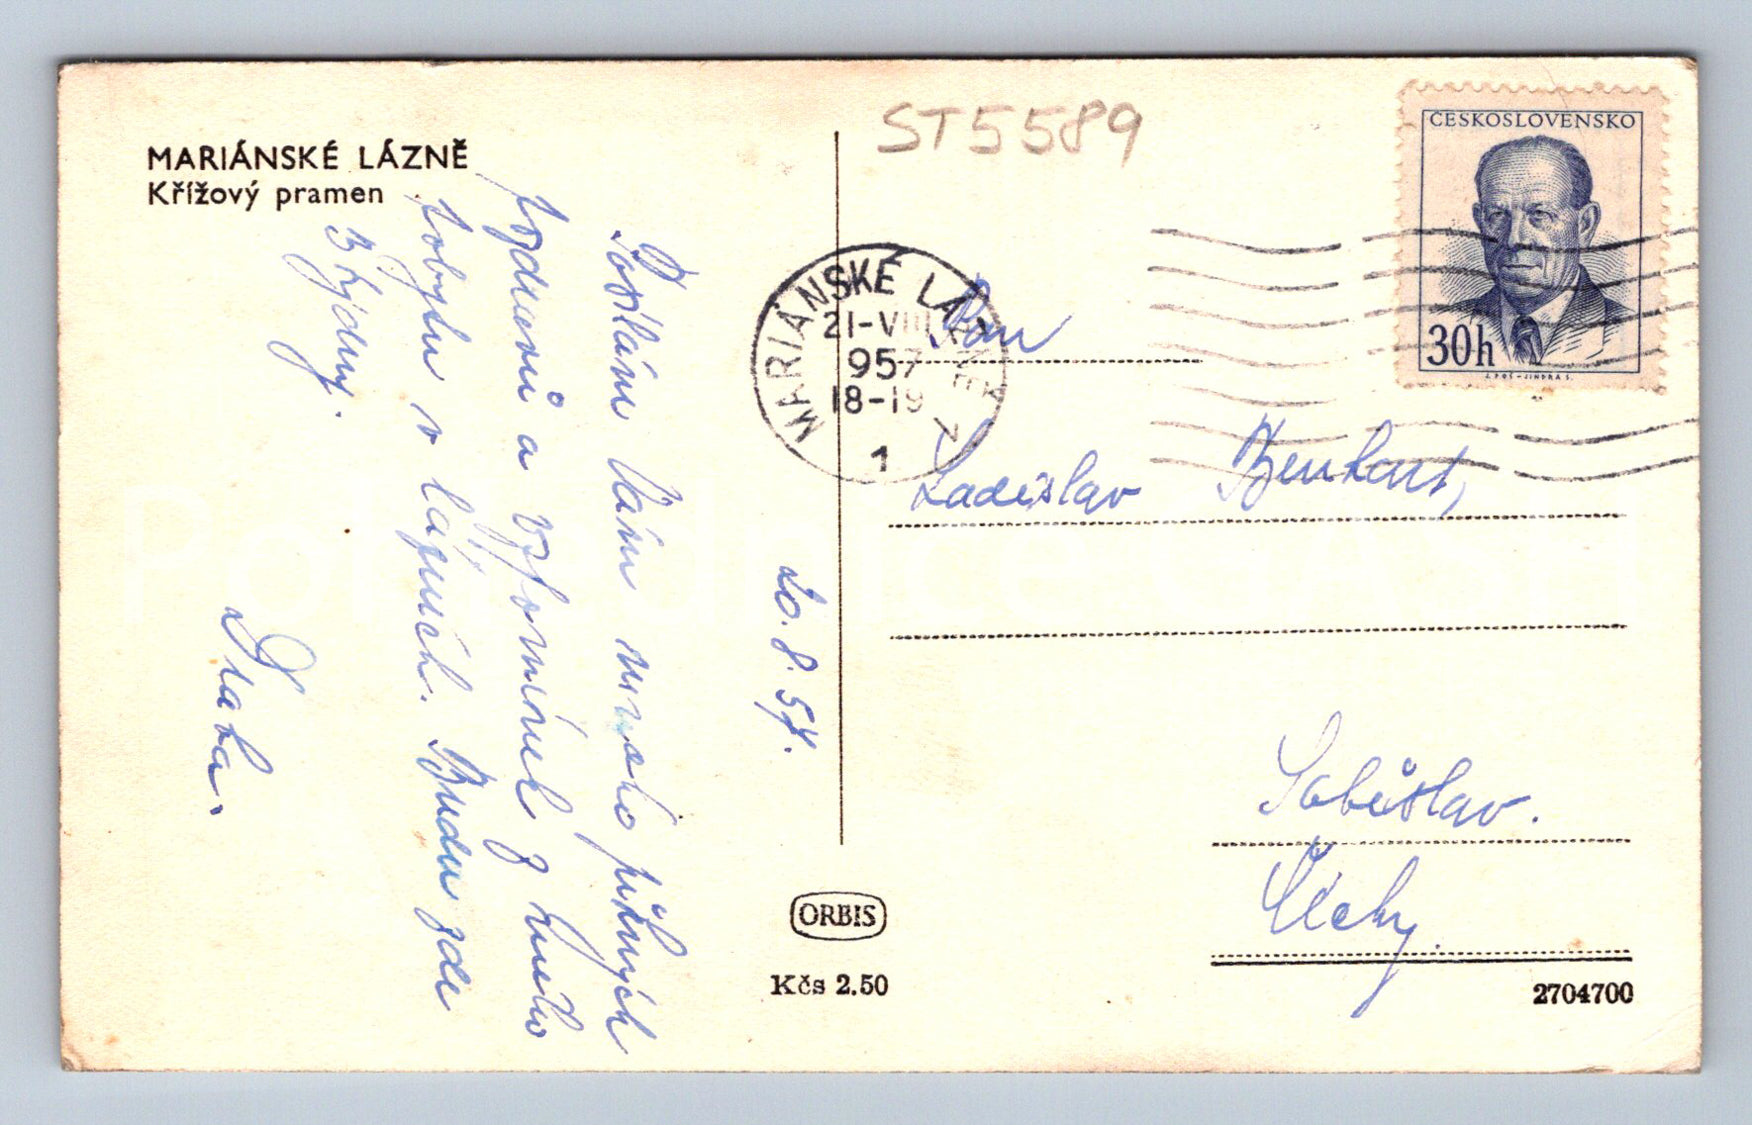 MARIÁNSKÉ LÁZNĚ
Křížový pramen
20. 8. 57.
Posílám Vám mnoho pěkných
pozdravů a vzpomínek z mého
pobytu v lázních. Budu zde
3 týdny.
ST5589
ČESKOSLOVENSKO
30h
MARIÁNSKÉ LÁZNĚ
21-VIII
957
18-19
1
Pan
Ladislav
Soběslav.
ORBIS
Kčs 2.50
2704700